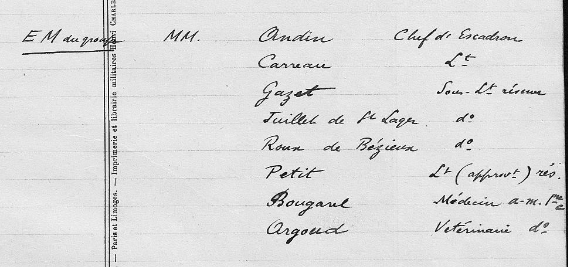 E M du groupe MM. Andin Chef d'Escadron
Carreau Lt
Gazet Sous-Lt réserve
Juillet de St Lager. do
Roux de Bézieux do
Petit Lt (approvt) rés.
Bougarel Médecin a-m. 1re
Argoud Vetérinaire do
— Paris et Limoges. — Imprimerie et librairie militaires Henri CHARLES